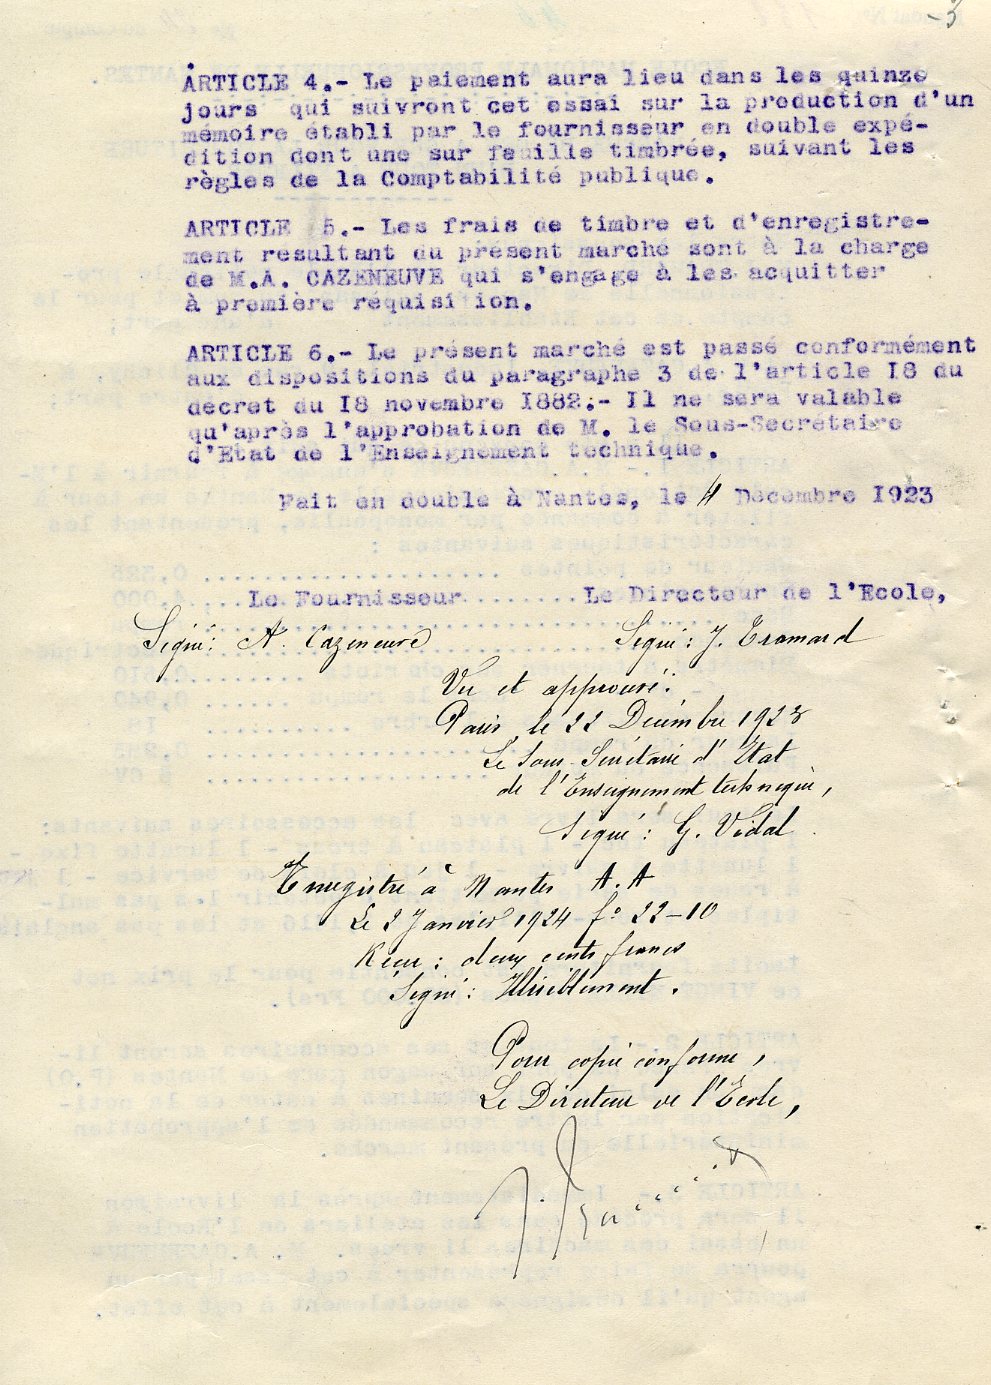 -3
ARTICLE 4.- Le paiement aura lieu dans les quinze
jours qui suivront cet essai sur la production d'un
mémoire établi par le fournisseur en double expé-
dition dont une sur feuille timbrée, suivant les
règles de la Comptabilité publique.
ARTICLE 5.- Les frais de timbre et d'enregistre-
ment résultant du présent marché sont à la charge
de M.A. CAZENEUVE qui s'engage à les acquitter
à première réquisition.
ARTICLE 6.- Le présent marché est passé conformément
aux dispositions du paragraphe 3 de l'article I8 du
décret du I8 novembre I882.- Il ne sera valable
qu'après l'approbation de M. le Sous-Secrétaire
d'Etat de l'Enseignement technique.
Fait en double à Nantes, le 11 Décembre I923
Le Fournisseur Le Directeur de l'Ecole,
Signé: A. Cazeneuve Signé: J. Tramard
Vu et approuvé.
Paris, le 22 Décembre 1923
Le Sous-Secrétaire d'Etat
de l'Enseignement technique,
Signé: G. Vidal
Enregistré à Nantes A.A
Le 2 Janvier 1924 fo 22-10
Recu: deux cents francs
Signé: Illisiblement.
Pour copie conforme,
Le Directeur de l'Ecole,